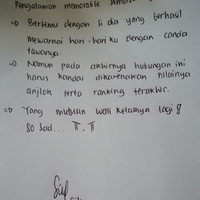 Pengalaman memorable
⇒ Bertemu dengan si dia yang berhasil
mewarnai hari-hari ku dengan canda
tawanya.
⇒ Namun pada akhirnya hubungan ini
harus kandas dikarenakan nilainya
anjlok serta ranking terakhir.
⇒ Yang mutusin wali kelasnya lagi !
So Sad... T.T